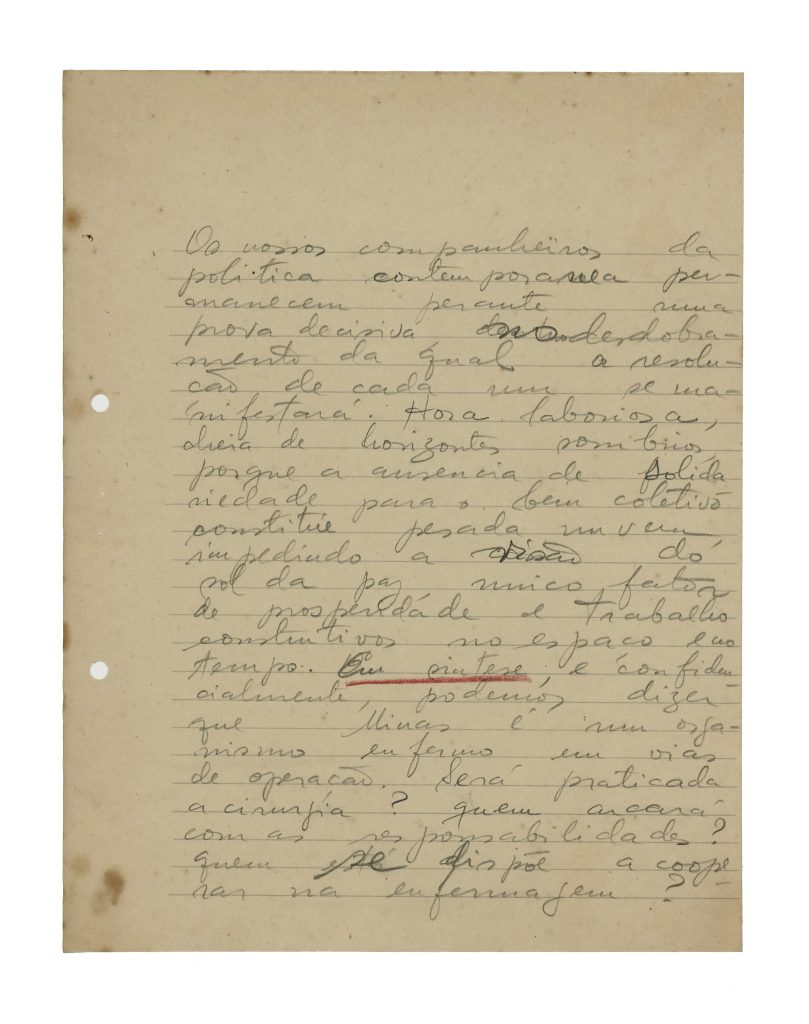 Os nossos companheiros da
politica contemporanea per-
manecem perante uma
prova decisiva no desdobra-
mento da qual a resolu-
cão de cada um se ma-
nifestará. Hora laboriosa,
cheia de horizontes sombrios,
porque a ausencia de solida
riedade para o bem coletivo
constitúe pesada nuvem,
impedindo a visão do
sol da paz unico fator
de prosperidade e trabalho
construtivos no espaço e no
tempo. Em sintese, e confiden
cialmente, podemos dizer
que Minas é um orga-
nismo enfermo em vias
de operacão. Será praticada
a cirurgia? Quem arcará
com as responsabilidades?
Quem se dispõe a coope
rar na enfermagem?